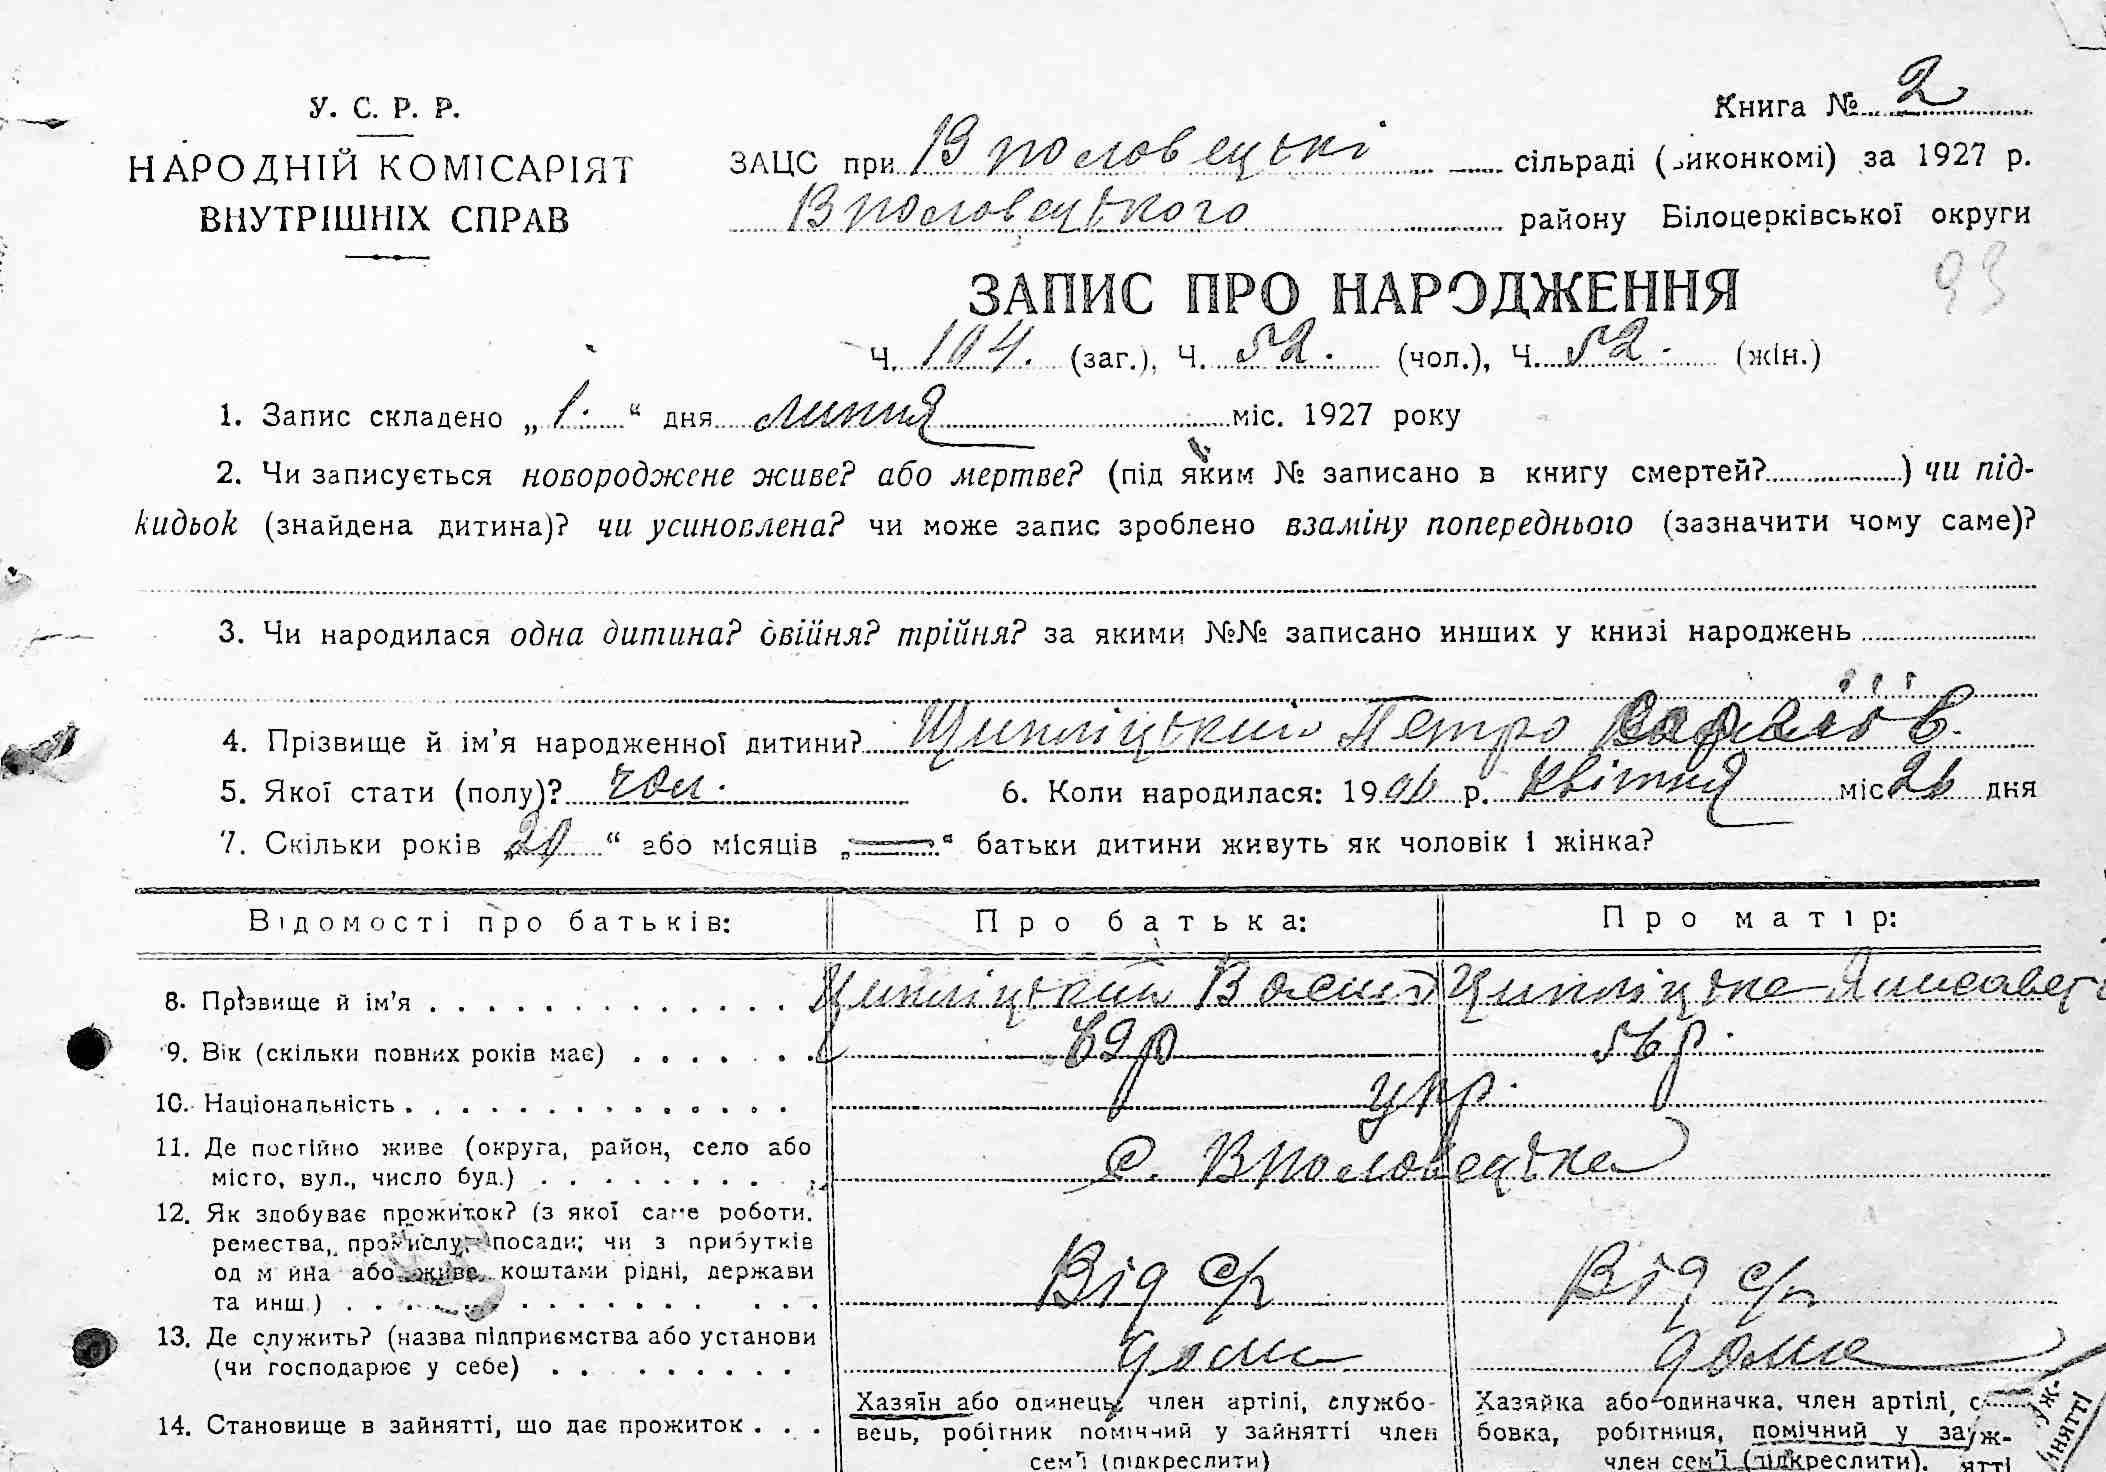 У. С. Р. Р.
НАРОДНІЙ КОМІСАРІЯТ
ВНУТРІШНІХ СПРАВ
Книга № 2
ЗАЦС при Вполовецькі сільраді (виконкомі) за 1927 р.
Вполовецького району Білоцерківської округи
ЗАПИС ПРО НАРОДЖЕННЯ
93
Ч. 104. (заг.), Ч. 52. (чол.), Ч. 52. (жін.)
1. Запис складено „1.“ дня липня міс. 1927 року
2. Чи записується новороджене живе? або мертве? (під яким № записано в книгу смертей?) чи під-
кидьок (знайдена дитина)? чи усиновлена? чи може запис зроблено взаміну попереднього (зазначити чому саме)?
3. Чи народилася одна дитина? двійня? трійня? за якими №№ записано инших у книзі народжень
4. Прізвище й ім’я народженної дитини? Ципліцький Петро
5. Якої стати (полу)? чол. 6. Коли народилася: 1906 р. квітня міс 26 дня
7. Скільки років „20“ або місяців „—“ батьки дитини живуть як чоловік і жінка?
Відомості про батьків: Про батька: Про матір:
8. Прізвище й ім’я Ципліцький Василь Ципліцька Ялисавета
9. Вік (скільки повних років має) 62р 56р.
10. Національність укр.
11. Де постійно живе (округа, район, село або
місто, вул., число буд.) с. Вполовецька
12. Як здобуває прожиток? (з якої саме роботи,
ремества, промислу, посади; чи з прибутків
од майна або живе коштами рідні, держави
та инш.) Від с/г Від с/г
13. Де служить? (назва підприємства або установи
(чи господарює у себе) дома дома
14. Становище в зайнятті, що дає прожиток
Хазяїн або одинець, член артілі, службо-
вець, робітник помічний у зайнятті член
сем’ї (підкреслити)
Хазяйка або одиначка, член артілі, с
бовка, робітниця, помічний у за
член сем’ї (підкреслити).